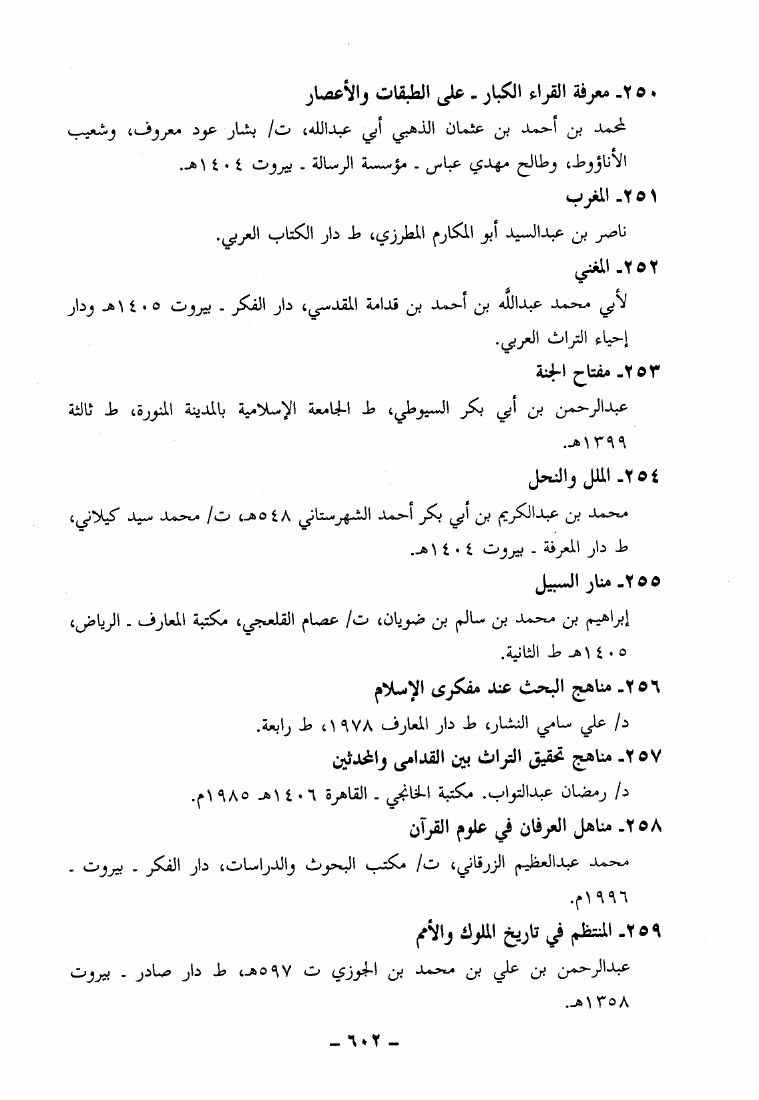 ٢٥٠ـ معرفة القراء الكبار ـ على الطبقات والأعصار
لمحمد بن أحمد بن عثمان الذهبي أبي عبدالله، ت/ بشار عود معروف، وشعيب
الأناؤوط، وطالح مهدي عباس ـ مؤسسة الرسالة ـ بيروت ١٤٠٤هـ.
٢٥١ـ المغرب
ناصر بن عبدالسيد أبو المكارم المطرزي، ط دار الكتاب العربي.
٢٥٢ـ المغني
لأبي محمد عبداللَّه بن أحمد بن قدامة المقدسي، دار الفكر ـ بيروت ١٤٠٥هـ ودار
إحياء التراث العربي.
٢٥٣ـ مفتاح الجنة
عبدالرحمن بن أبي بكر السيوطي، ط الجامعة الإسلامية بالمدينة المنورة، ط ثالثة
١٣٩٩هـ.
٢٥٤ـ الملل والنحل
محمد بن عبدالكريم بن أبي بكر أحمد الشهرستاني ٥٤٨هـ، ت/ محمد سيد كيلاني،
ط دار المعرفة ـ بيروت ١٤٠٤هـ.
٢٥٥ـ منار السبيل
إبراهيم بن محمد بن سالم بن ضويان، ت/ عصام القلعجي، مكتبة المعارف ـ الرياض،
١٤٠٥هـ ط الثانية.
٢٥٦ـ مناهج البحث عند مفكرى الإسلام
د/ علي سامي النشار، ط دار المعارف ١٩٧٨، ط رابعة.
٢٥٧ـ مناهج تحقيق التراث بين القدامى والمحدثين
د/ رمضان عبدالتواب. مكتبة الخانجي ـ القاهرة ١٤٠٦هـ ١٩٨٥م.
٢٥٨ـ مناهل العرفان في علوم القرآن
محمد عبدالعظيم الزرقاني، ت/ مكتب البحوث والدراسات، دار الفكر ـ بيروت ـ
١٩٩٦م.
٢٥٩ـ المنتظم في تاريخ الملوك والأمم
عبدالرحمن بن علي بن محمد بن الجوزي ت ٥٩٧هـ، ط دار صادر ـ بيروت
١٣٥٨هـ.
ـ ٦٠٢ ـ